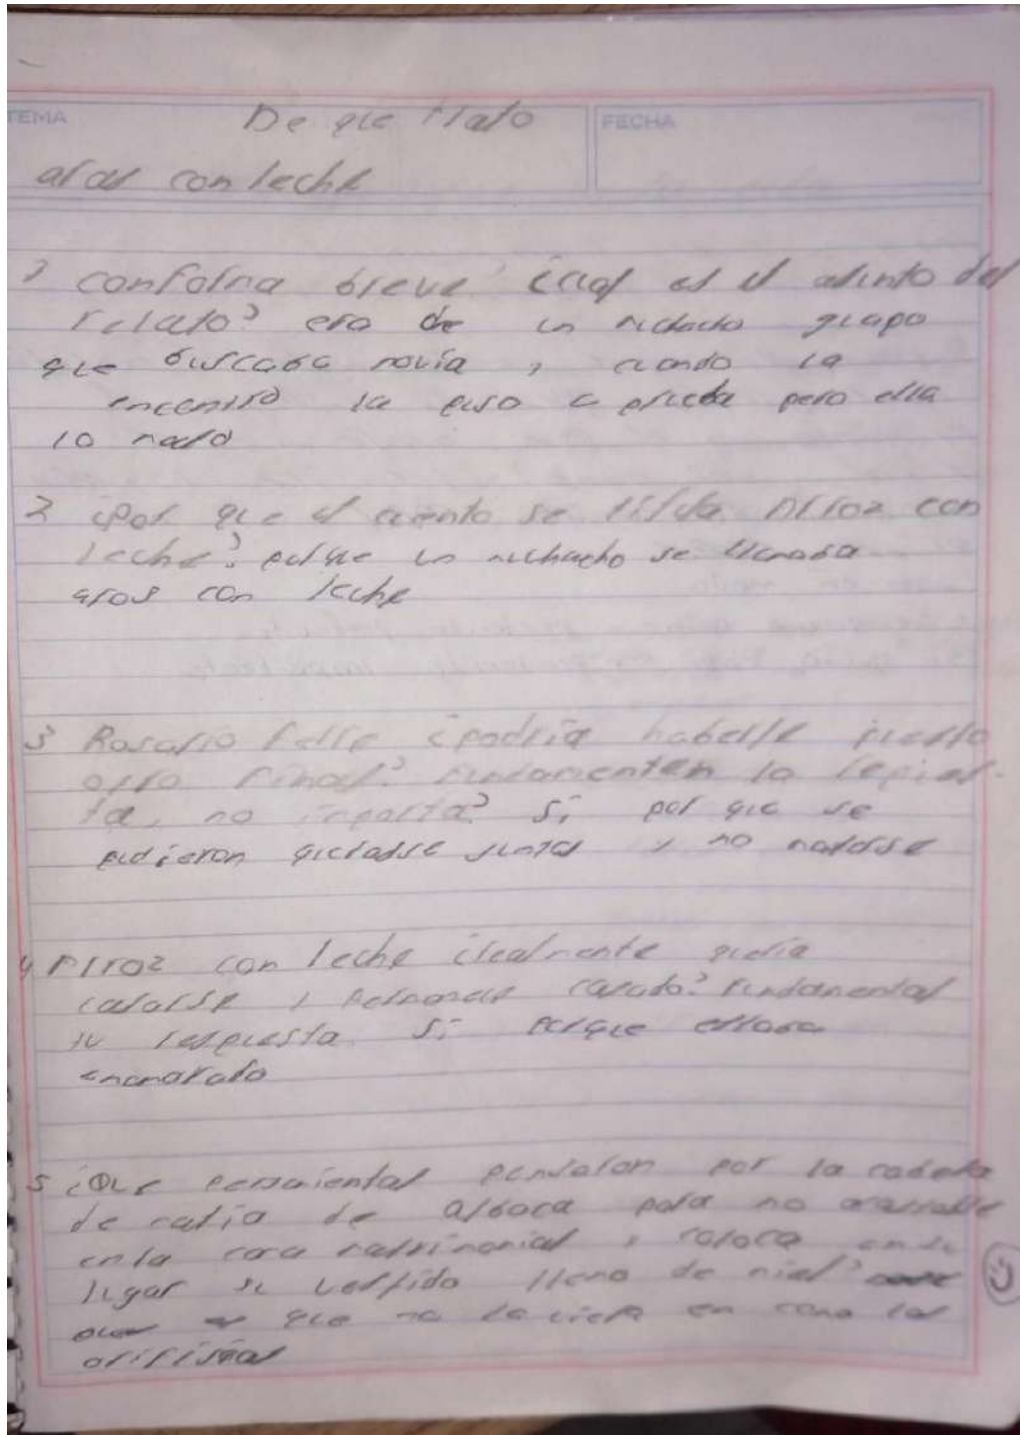 TEMA De que trato FECHA
aros con leche
1 conforma breve ¿cual es el asunto del
relato? era de un muchacho guapo
que buscaba novia y cuando la
encontro la puso a prueba pero ella
lo mato
2 ¿Por que el cuento se titula Arroz con
leche? porque un muchacho se llamaba
aros con leche
3 Rosario Ferre ¿podria haberle puesto
otro final? fundamenten la respues-
ta, no importa? Si por que se
pudieron quedarse juntos y no matarse
4 Arroz con leche ¿realmente queria
casarse y permanecer casado? fundamental
su respuesta. Si porque estaba
enamorado
5 ¿Que pensaron por la cabeza
de de para no
en la cama matrimonial y coloca en su
lugar su vestido lleno de miel?
que no la en como las